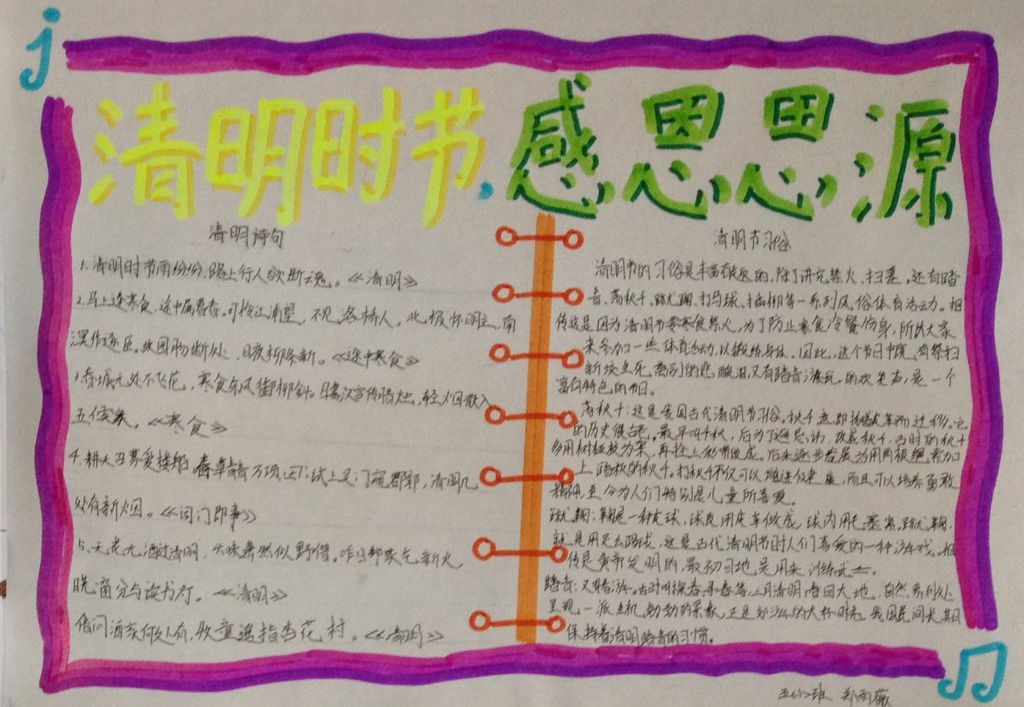 清明时节,感恩思源
清明诗句
1.清明时节雨纷纷,路上行人欲断魂。《清明》
2.马上逢寒食,途中属暮春。可怜江浦望,不见洛桥人。北极怀明主,南
溟作逐臣。故园肠断处,日夜柳条新。《途中寒食》
3.春城无处不飞花,寒食东风御柳斜。日暮汉宫传蜡烛,轻烟散入
五侯家。《寒食》
4.耕夫召募爱楼船,春草青青万项田;试上吴门窥郡郭,清明几
处有新烟。《闾门即事》
5.无花无酒过清明,兴味萧然似野僧。昨日邻家乞新火
晓窗分与读书灯。《清明》
借问酒家何处有,牧童遥指杏花村。《清明》
清明节习俗
清明节的习俗是丰富有趣的,除了讲究禁火、扫墓,还有踏
青、荡秋千、蹴尤鞠、打马球、插柳等一系列风俗体育活动。相
传这是因为清明节要寒食禁火,为了防止寒食冷餐伤身,所以大家
来参加一些体育活动,以锻炼身体。因此,这个节日中既有祭扫
新坟生死离别的悲酸泪,又有踏青游玩的欢笑声,是一个
富有特色的节日。
荡秋千:这是我国古代清明节习俗。秋千意即揪着皮革而迁移。它
的历史很古老,最早叫千秋,后为了避忌讳,改成秋千,古时的秋千
多用树桠枝为架,再拴上彩带做成。后来逐步发展为用两根绳索加
上踏板的秋千。打秋千不仅可以增进健康,而且可以培养勇敢
精神,至今为人们特别是儿童所喜爱。
蹴尤鞠:鞠是一种皮球,球皮用皮革做成,球内用毛塞紧。蹴尤鞠,
就是用足去踢球。这是古代清明节时人们喜爱的一种游戏。相
传是黄帝发明的,最初目地是用来训练武士。
踏青:又叫春游。古时叫探春、寻春等。三月清明,春回大地,自然界到处
呈现一派生机勃勃的景象,正是郊游的大好时光。我国民间长期
保持着清明踏青的习惯。
五(2)班 郑雨薇